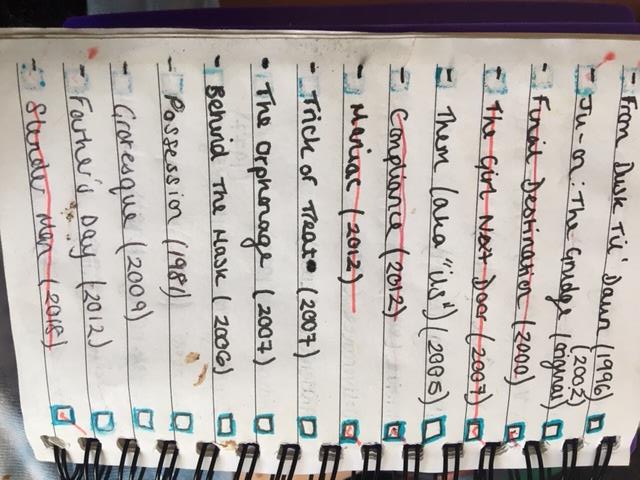 - From Dusk Til' Dawn (1996)
- Ju-on: The Grudge (original)
(2002)
- Final Destination (2000)
- The Girl Next Door (2007)
- Them (aka "ils") (2005)
- Compliance (2012)
- Maniac (2012)
- Trick or Treat (2007)
- The Orphanage (2007)
- Behind The Mask (2006)
- Possession (1981)
- Grotesque (2009)
- Father's Day (2012)
- Slender Man (2018)